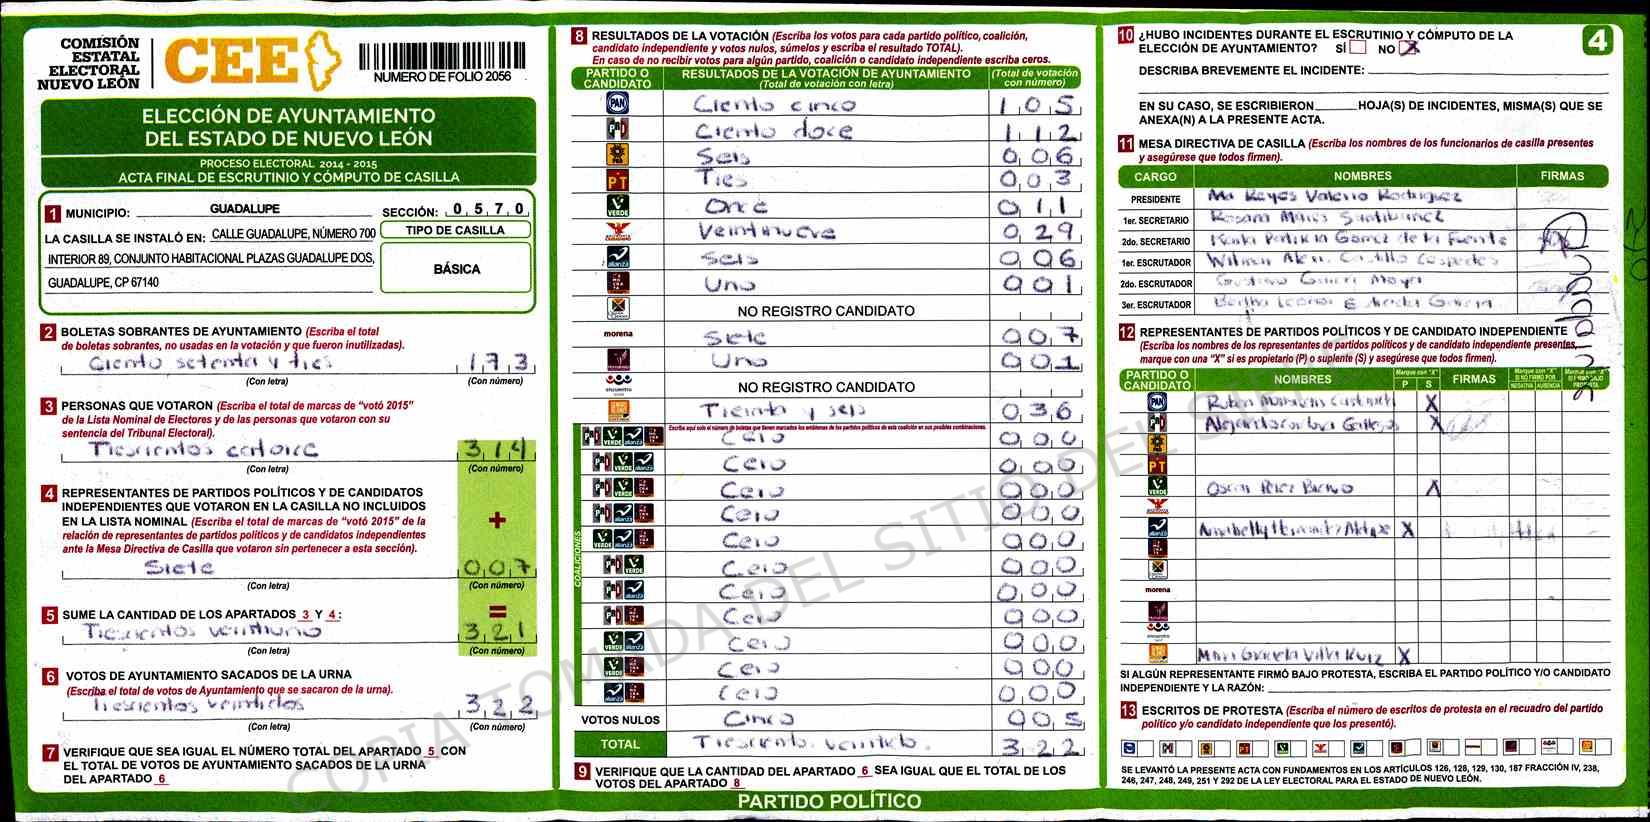 COMISIÓN
ESTATAL
ELECTORAL
NUEVO LEÓN
CEE
NUMERO DE FOLIO 2056
ELECCIÓN DE AYUNTAMIENTO
DEL ESTADO DE NUEVO LEÓN
PROCESO ELECTORAL 2014 - 2015
ACTA FINAL DE ESCRUTINIO Y CÓMPUTO DE CASILLA
1 MUNICIPIO: GUADALUPE SECCIÓN: 0 5 7 0
LA CASILLA SE INSTALÓ EN: CALLE GUADALUPE, NÚMERO 700
INTERIOR 89, CONJUNTO HABITACIONAL PLAZAS GUADALUPE DOS,
GUADALUPE, CP 67140
TIPO DE CASILLA
BÁSICA
2 BOLETAS SOBRANTES DE AYUNTAMIENTO (Escriba el total
de boletas sobrantes, no usadas en la votación y que fueron inutilizadas).
Ciento setenta y tres 1 7 3
(Con letra) (Con número)
3 PERSONAS QUE VOTARON (Escriba el total de marcas de “votó 2015”
de la Lista Nominal de Electores y de las personas que votaron con su
sentencia del Tribunal Electoral).
Trescientos catorce 3 1 4
(Con letra) (Con número)
4 REPRESENTANTES DE PARTIDOS POLÍTICOS Y DE CANDIDATOS
INDEPENDIENTES QUE VOTARON EN LA CASILLA NO INCLUIDOS
EN LA LISTA NOMINAL (Escriba el total de marcas de “votó 2015” de la
relación de representantes de partidos políticos y de candidatos independientes
ante la Mesa Directiva de Casilla que votaron sin pertenecer a esta sección).
+
Siete 0 0 7
(Con letra) (Con número)
5 SUME LA CANTIDAD DE LOS APARTADOS 3 Y 4 :
=
Trescientos veintiuno 3 2 1
(Con letra) (Con número)
6 VOTOS DE AYUNTAMIENTO SACADOS DE LA URNA
(Escriba el total de votos de Ayuntamiento que se sacaron de la urna).
Trescientos veintidos 3 2 2
(Con letra) (Con número)
7 VERIFIQUE QUE SEA IGUAL EL NÚMERO TOTAL DEL APARTADO 5 CON
EL TOTAL DE VOTOS DE AYUNTAMIENTO SACADOS DE LA URNA
DEL APARTADO 6
8 RESULTADOS DE LA VOTACIÓN (Escriba los votos para cada partido político, coalición,
candidato independiente y votos nulos, súmelos y escriba el resultado TOTAL).
En caso de no recibir votos para algún partido, coalición o candidato independiente escriba ceros.
PARTIDO O CANDIDATO RESULTADOS DE LA VOTACIÓN DE AYUNTAMIENTO (Total de votación con letra) (Total de votación con número)
PAN Ciento cinco 1 0 5
PRI Ciento doce 1 1 2
Seis 0 0 6
PT Tres 0 0 3
VERDE Once 0 1 1
Veintinueve 0 2 9
alianza Seis 0 0 6
Uno 0 0 1
NO REGISTRO CANDIDATO
morena Siete 0 0 7
Uno 0 0 1
encuentro NO REGISTRO CANDIDATO
Treinta y seis 0 3 6
Escriba aquí solo el número de boletas que tienen marcados los emblemas de los partidos políticos de esta coalición en sus posibles combinaciones.
COALICIONES
Cero 0 0 0
Cero 0 0 0
Cero 0 0 0
Cero 0 0 0
Cero 0 0 0
Cero 0 0 0
Cero 0 0 0
Cero 0 0 0
Cero 0 0 0
Cero 0 0 0
Cero 0 0 0
VOTOS NULOS Cinco 0 0 5
TOTAL 3 2 2
9 VERIFIQUE QUE LA CANTIDAD DEL APARTADO 6 SEA IGUAL QUE EL TOTAL DE LOS
VOTOS DEL APARTADO 8
PARTIDO POLÍTICO
10 ¿HUBO INCIDENTES DURANTE EL ESCRUTINIO Y CÓMPUTO DE LA
ELECCIÓN DE AYUNTAMIENTO? SÍ NO X
4
DESCRIBA BREVEMENTE EL INCIDENTE:
EN SU CASO, SE ESCRIBIERON HOJA(S) DE INCIDENTES, MISMA(S) QUE SE
ANEXA(N) A LA PRESENTE ACTA.
11 MESA DIRECTIVA DE CASILLA (Escriba los nombres de los funcionarios de casilla presentes
y asegúrese que todos firmen).
CARGO NOMBRES FIRMAS
PRESIDENTE Ma Reyes Valerio Rodriguez
1er. SECRETARIO
2do. SECRETARIO Gomez de la Fuente
1er. ESCRUTADOR Castillo
2do. ESCRUTADOR
3er. ESCRUTADOR Bertha Garcia
12 REPRESENTANTES DE PARTIDOS POLÍTICOS Y DE CANDIDATO INDEPENDIENTE
(Escriba los nombres de los representantes de partidos políticos y de candidato independiente presentes,
marque con una “X” si es propietario (P) o suplente (S) y asegúrese que todos firmen).
PARTIDO O CANDIDATO NOMBRES Marque con “X” P S FIRMAS
PAN X
PRI X
PT
VERDE Oscar Perez X
alianza X
morena
encuentro
Villa Ruiz X
SI ALGÚN REPRESENTANTE FIRMÓ BAJO PROTESTA, ESCRIBA EL PARTIDO POLÍTICO Y/O CANDIDATO
INDEPENDIENTE Y LA RAZÓN:
13 ESCRITOS DE PROTESTA (Escriba el número de escritos de protesta en el recuadro del partido
político y/o candidato independiente que los presentó).
SE LEVANTÓ LA PRESENTE ACTA CON FUNDAMENTOS EN LOS ARTÍCULOS 126, 128, 129, 130, 187 FRACCIÓN IV, 238,
246, 247, 248, 249, 251 Y 292 DE LA LEY ELECTORAL PARA EL ESTADO DE NUEVO LEÓN.
COPIA TOMADA DEL SITIO DEL